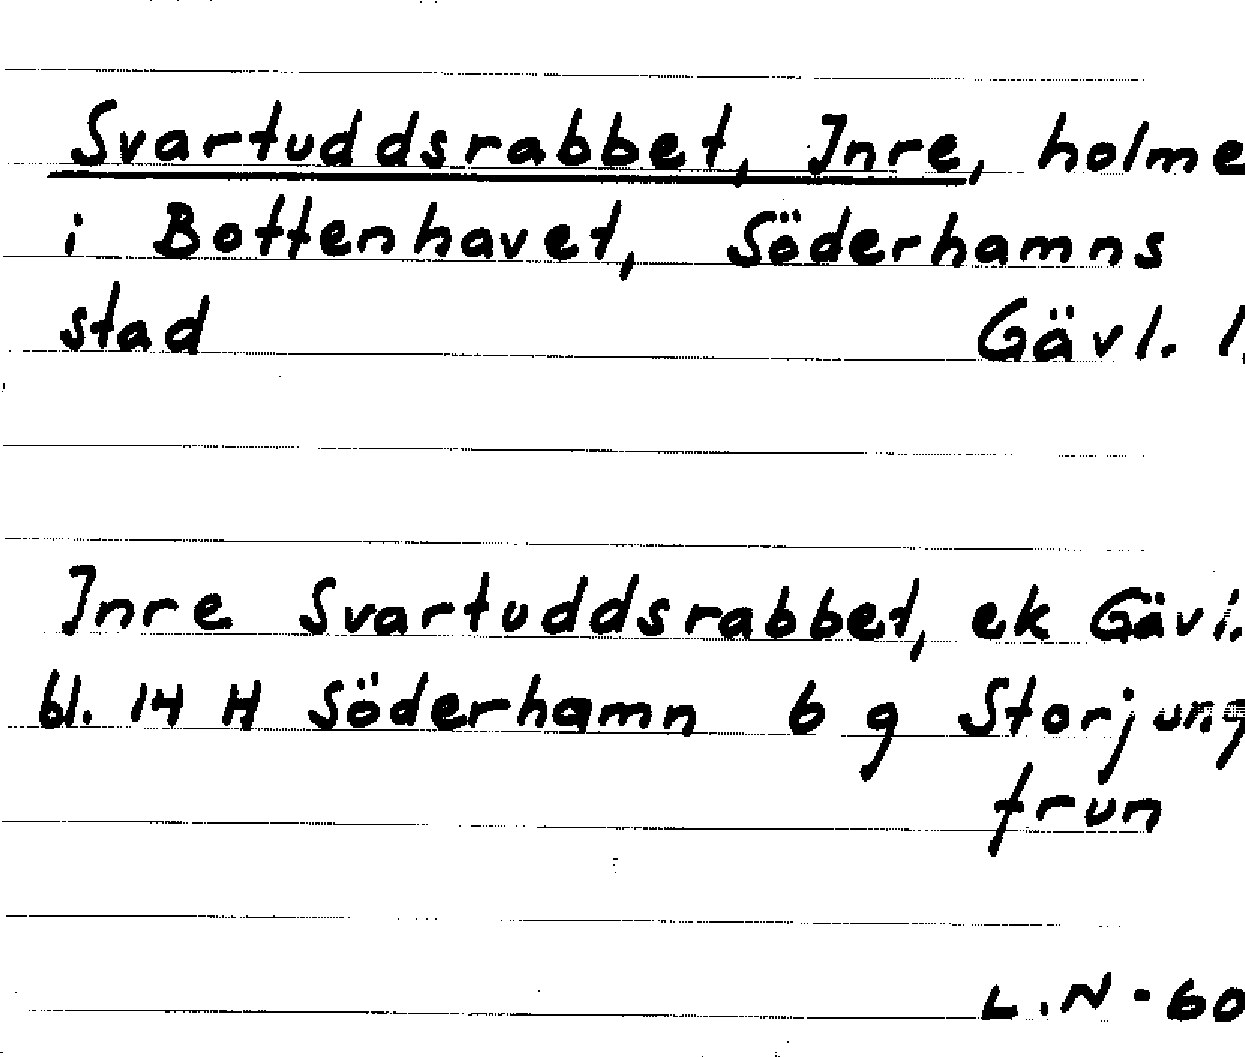 Svartuddsrabbet, Inre, holme
i Bottenhavet, Söderhamns
stad Gävl. l.
Inre Svartuddsrabbet, ek Gävl.
bl. 14 H Söderhamn 6 g Storjung
frun
L.N-60